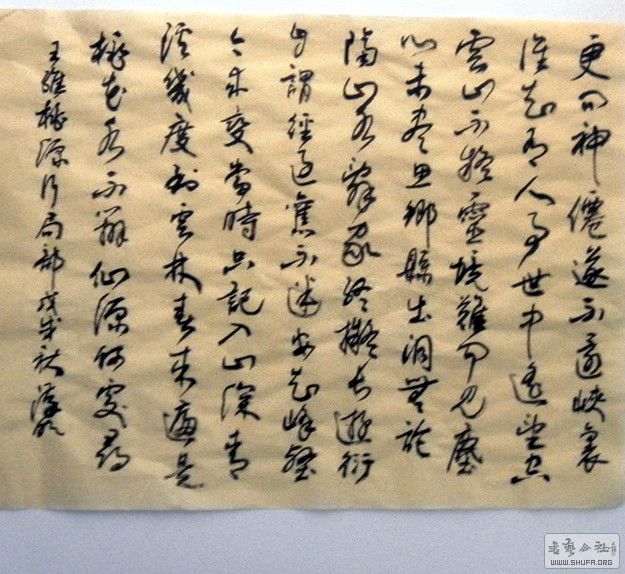 更問神僊遂不還峽裏
誰知有人事世中遙望空
雲山不疑靈境難聞見塵
心未盡思鄉縣出洞無論
隔山水辭家終擬長遊衍
自謂經過舊不迷安知峰壑
今來變當時只記入山深青
溪幾度到雲林春來遍是
桃花水不辨仙源何處尋
王維桃源行局部戊戌秋
書藝公社
WWW.SHUFA.ORG